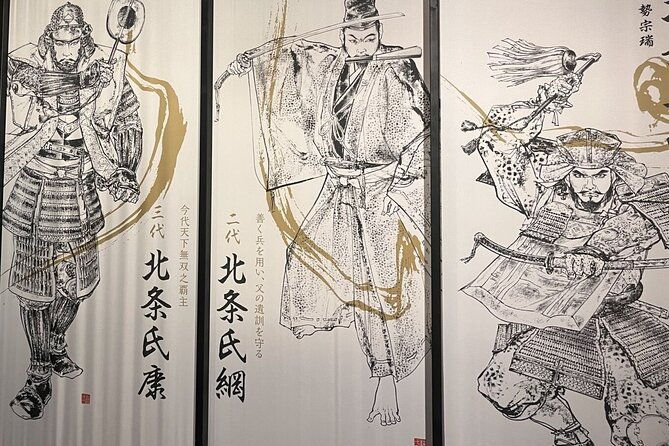 勢宗瑞
善く兵を用い、父の遺訓を守る
二代 北条氏綱
今代天下無双之覇主
三代 北条氏康